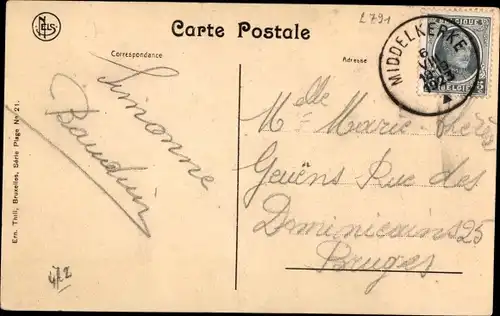 L791
NELS
Carte Postale
Correspondance
Adresse
MIDDELKERKE
6
VIII
1925
BELGIQUE
BELGIË
5
Simonne
Bauduin
Melle Marie
Geuens Rue des
Dominicains 25
Bruges
Ern. Thill, Bruxelles, Série Plage No 21.